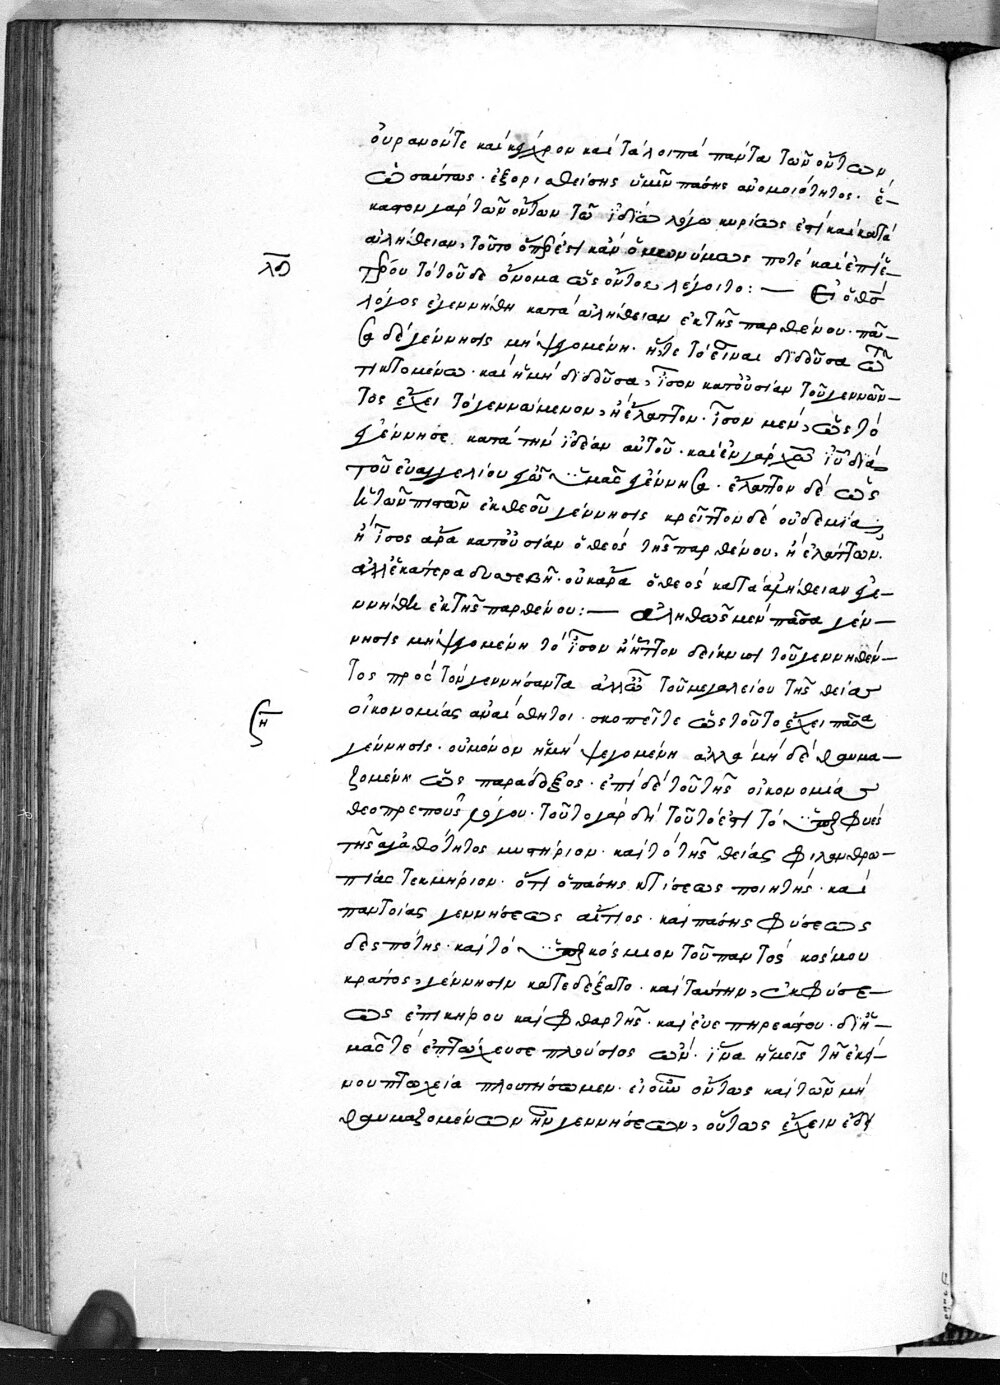 οὐρανόν τε καὶ κλῆρον καὶ τὰ λοιπὰ πάντα τῶν ὄντων
ὡσαύτως · ἐξορισθείσης ὑμῖν πάσης ἀνομοιότητος · ἕ-
καστον γὰρ τῶν ὄντων τῶ ἰδίω λόγω κυρίως ἐστὶ καὶ κατὰ
ἀλήθειαν, τοῦτο ὅπερ ἐστὶ κἂν ὁμωνύμως ποτὲ καὶ ἐπὶ ἑ-
τέρου τὸ τοῦδε ὄνομα ὡς οὗτος, λέγοιτο : — Εἰ ὁ θσ
λόγος ἐγεννήθη κατὰ ἀλήθειαν ἐκ τῆς παρθένου · πᾶ-
σα δὲ γέννησις μὴ ψεγομένη · ἥτε τὸ εἶναι διδοῦσα τῶ
τικτομένω · καὶ ἡ μὴ διδοῦσα, ἴσον κατ' οὐσίαν τοῦ γεννῶν-
τος ἔχει τὸ γεννώμενον, ἢ ἔλαττον · ἴσον μὲν, ὡς τὸ
γέννησε κατὰ τὴν ἰδέαν αὐτοῦ · καὶ ἐν γὰρ χω ιυ διὰ
τοῦ εὐαγγελίου ἐγὼ ὑμᾶς ἐγέννησα · ἔλαττον δὲ ὡς
ἡ τῶν πιστῶν ἐκ θεοῦ γέννησις κρεῖττον δὲ οὐδεμία
ἢ ἴσος ἄρα κατ' οὐσίαν ὁ θεὸς τῆς παρθένου, ἢ ἐλάττων.
ἀλλ' ἑκάτερα δυσσεβῆ · οὐκ ἄρα ὁ θεὸς κατὰ ἀλήθειαν γε-
ννήθη ἐκ τῆς παρθένου : — ἀληθῶς μὲν πᾶσα γέν-
νησις μὴ ψεγομένη τὸ ἴσον ἢ ἧττον δείκνυσι τοῦ γεννηθέν-
τος πρὸς τὸν γεννήσαντα ἀλλ' ὦ τοῦ μεγαλείου τῆς θείας
οἰκονομίας ἀναίσθητοι · σκοπεῖτε ὡς τοῦτο ἔχει πᾶσα
γέννησις · οὐ μόνον ἡ μὴ ψεγομένη ἀλλὰ μὴ δὲ θαυμα-
ζομένη ὡς παράδοξος · ἐπὶ δὲ τοῦ τῆς οἰκονομίας
θεοπρεποῦς λόγου · τοῦτο γὰρ δὴ τοῦτό ἐστι τὸ ὑπερφυὲς
τῆς ἀγαθότητος μυστήριον · καὶ τὸ τῆς θείας φιλανθρω-
πίας τεκμήριον · ὅτι ὁ πάσης κτίσεως ποιητὴς · καὶ
παντοίας γεννήσεως αἴτιος · καὶ πάσης φύσεως
δεσπότης · καὶ τὸ ὑπερκόσμιον τοῦ παντὸς κόσμου
κράτος, γέννησιν κατεδέξατο · καὶ ταύτην, ἐκ φύσε-
ως ἐπικήρου καὶ φθαρτῆς · καὶ εὐεπηρεάστου · δι' ἡ-
μᾶς τὲ ἐπτώχευσε πλούσιος ὢν · ἵνα ἡμεῖς τῆ ἐκεί-
νου πτωχεία πλουτήσωμεν · εἰ οὖν οὕτως καὶ τῶν μὴ
θαυμαζομένων τὴν γεννήσεων, οὕτως ἔχειν ἔδει
λδ
λη